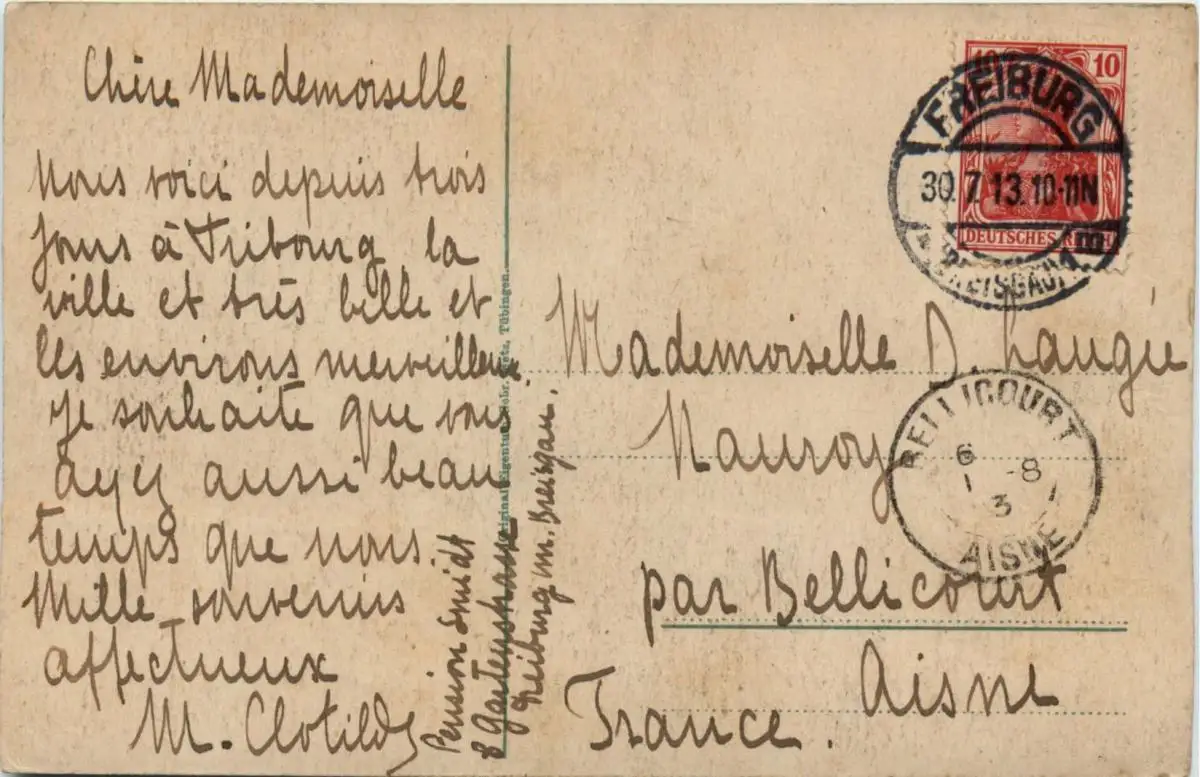 Chère Mademoiselle
Nous voici depuis trois
jours à Fribourg la
ville et très belle et
les environs merveilleux.
Je souhaite que vous
ayez aussi beau
temps que nous.
Mille souvenirs
affectueux
M. Clotilde
Pension Smidt
8 Gartenstrasse
Freiburg m. Breisgau.
Tübingen.
10 10
DEUTSCHES REICH
FREIBURG
30.7.13.10-11N
BREISGAU
Mademoiselle D. Laugée
Nauroy
par Bellicourt
Aisne
France.
BELLICOURT
6
1 -8
3
AISNE